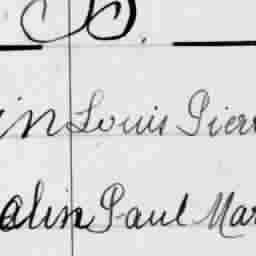 B.
in Louis Pierr
alin Paul Mar